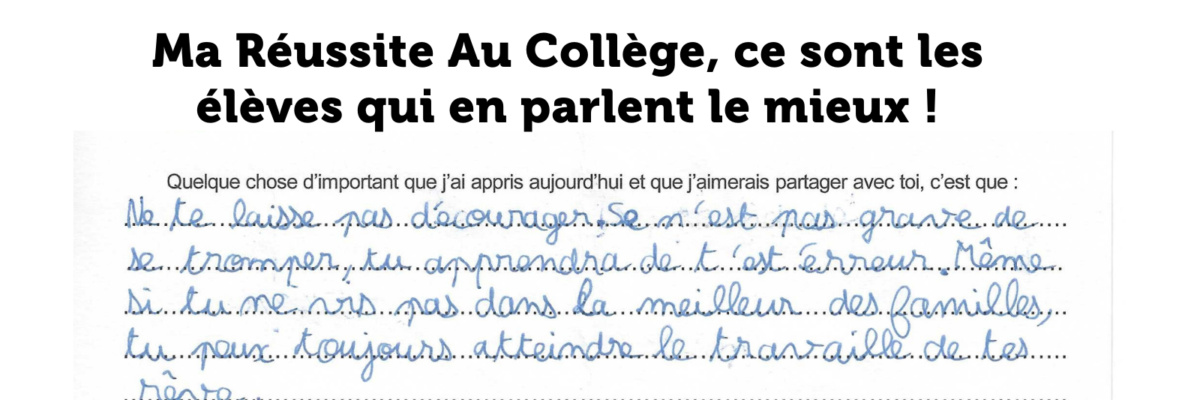 Ma Réussite Au Collège, ce sont les
élèves qui en parlent le mieux !
Quelque chose d'important que j'ai appris aujourd'hui et que j'aimerais partager avec toi, c'est que :
Ne te laisse pas décourager. Se n'est pas grave de
se tromper, tu apprendra de t'est érreur. Même
si tu ne vis pas dans la meilleur des familles,
tu peux toujours atteindre le travaille de tes
rêve.